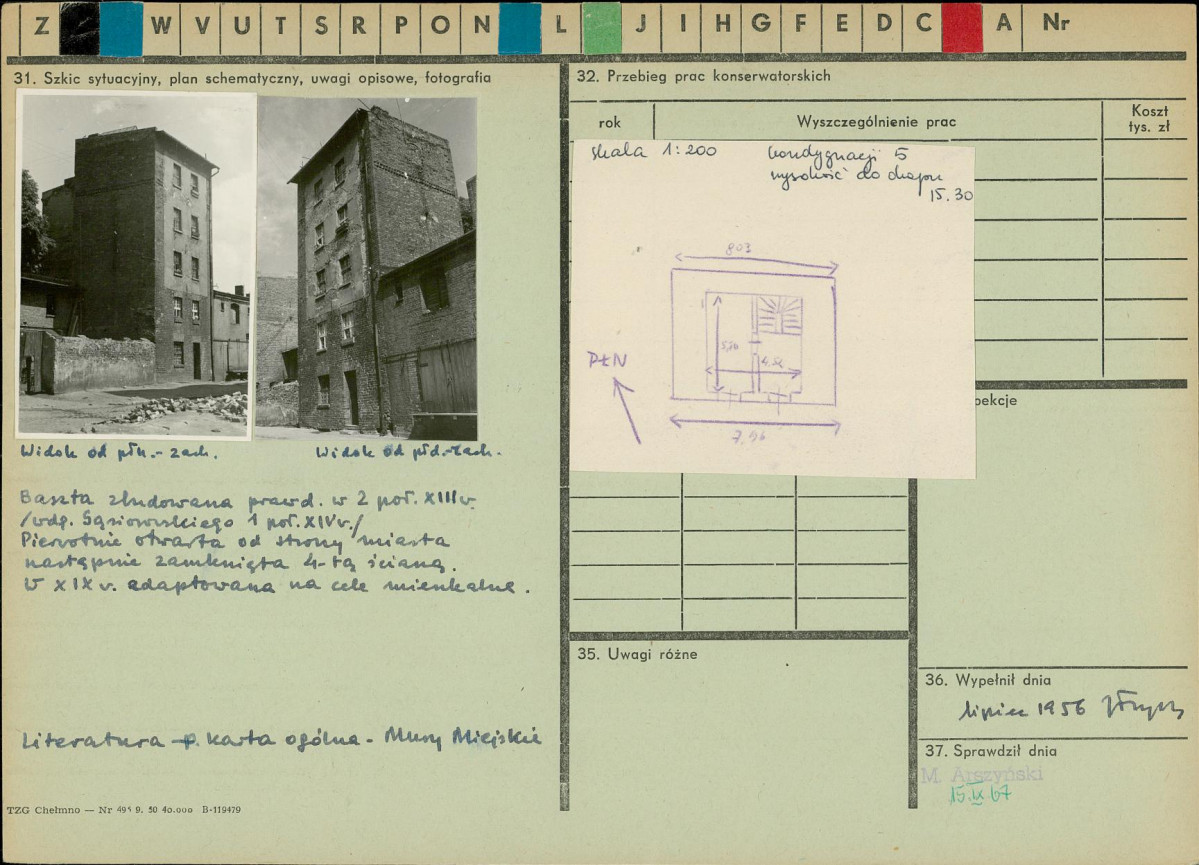 Z W V U T S R P O N L J I H G F E D C A Nr
31. Szkic sytuacyjny, plan schematyczny, uwagi opisowe, fotografia
Widok od płn.- zach.
Widok od płd.-zach.
Baszta zbudowana prawd. w 2 poł. XIII w.
/wdg. Gąsiorowskiego 1 poł. XIV w./
Pierwotnie otwarta od strony miasta
następnie zamknięta 4-tą ścianą.
W XIX w. adaptowana na cele mieszkalne.
Literatura - p. karta ogólna - Mury Miejskie
TZG Chełmno — Nr 495 9. 50 40.000 B-119479
32. Przebieg prac konserwatorskich
rok
Wyszczególnienie prac
Koszt
tys. zł
skala 1:200
kondygnacji 5
wysokość do okapu
15.30
803
PŁN
7,96
pekcje
35. Uwagi różne
36. Wypełnił dnia
lipiec 1956
37. Sprawdził dnia
M. Arszyński
15.IX 67